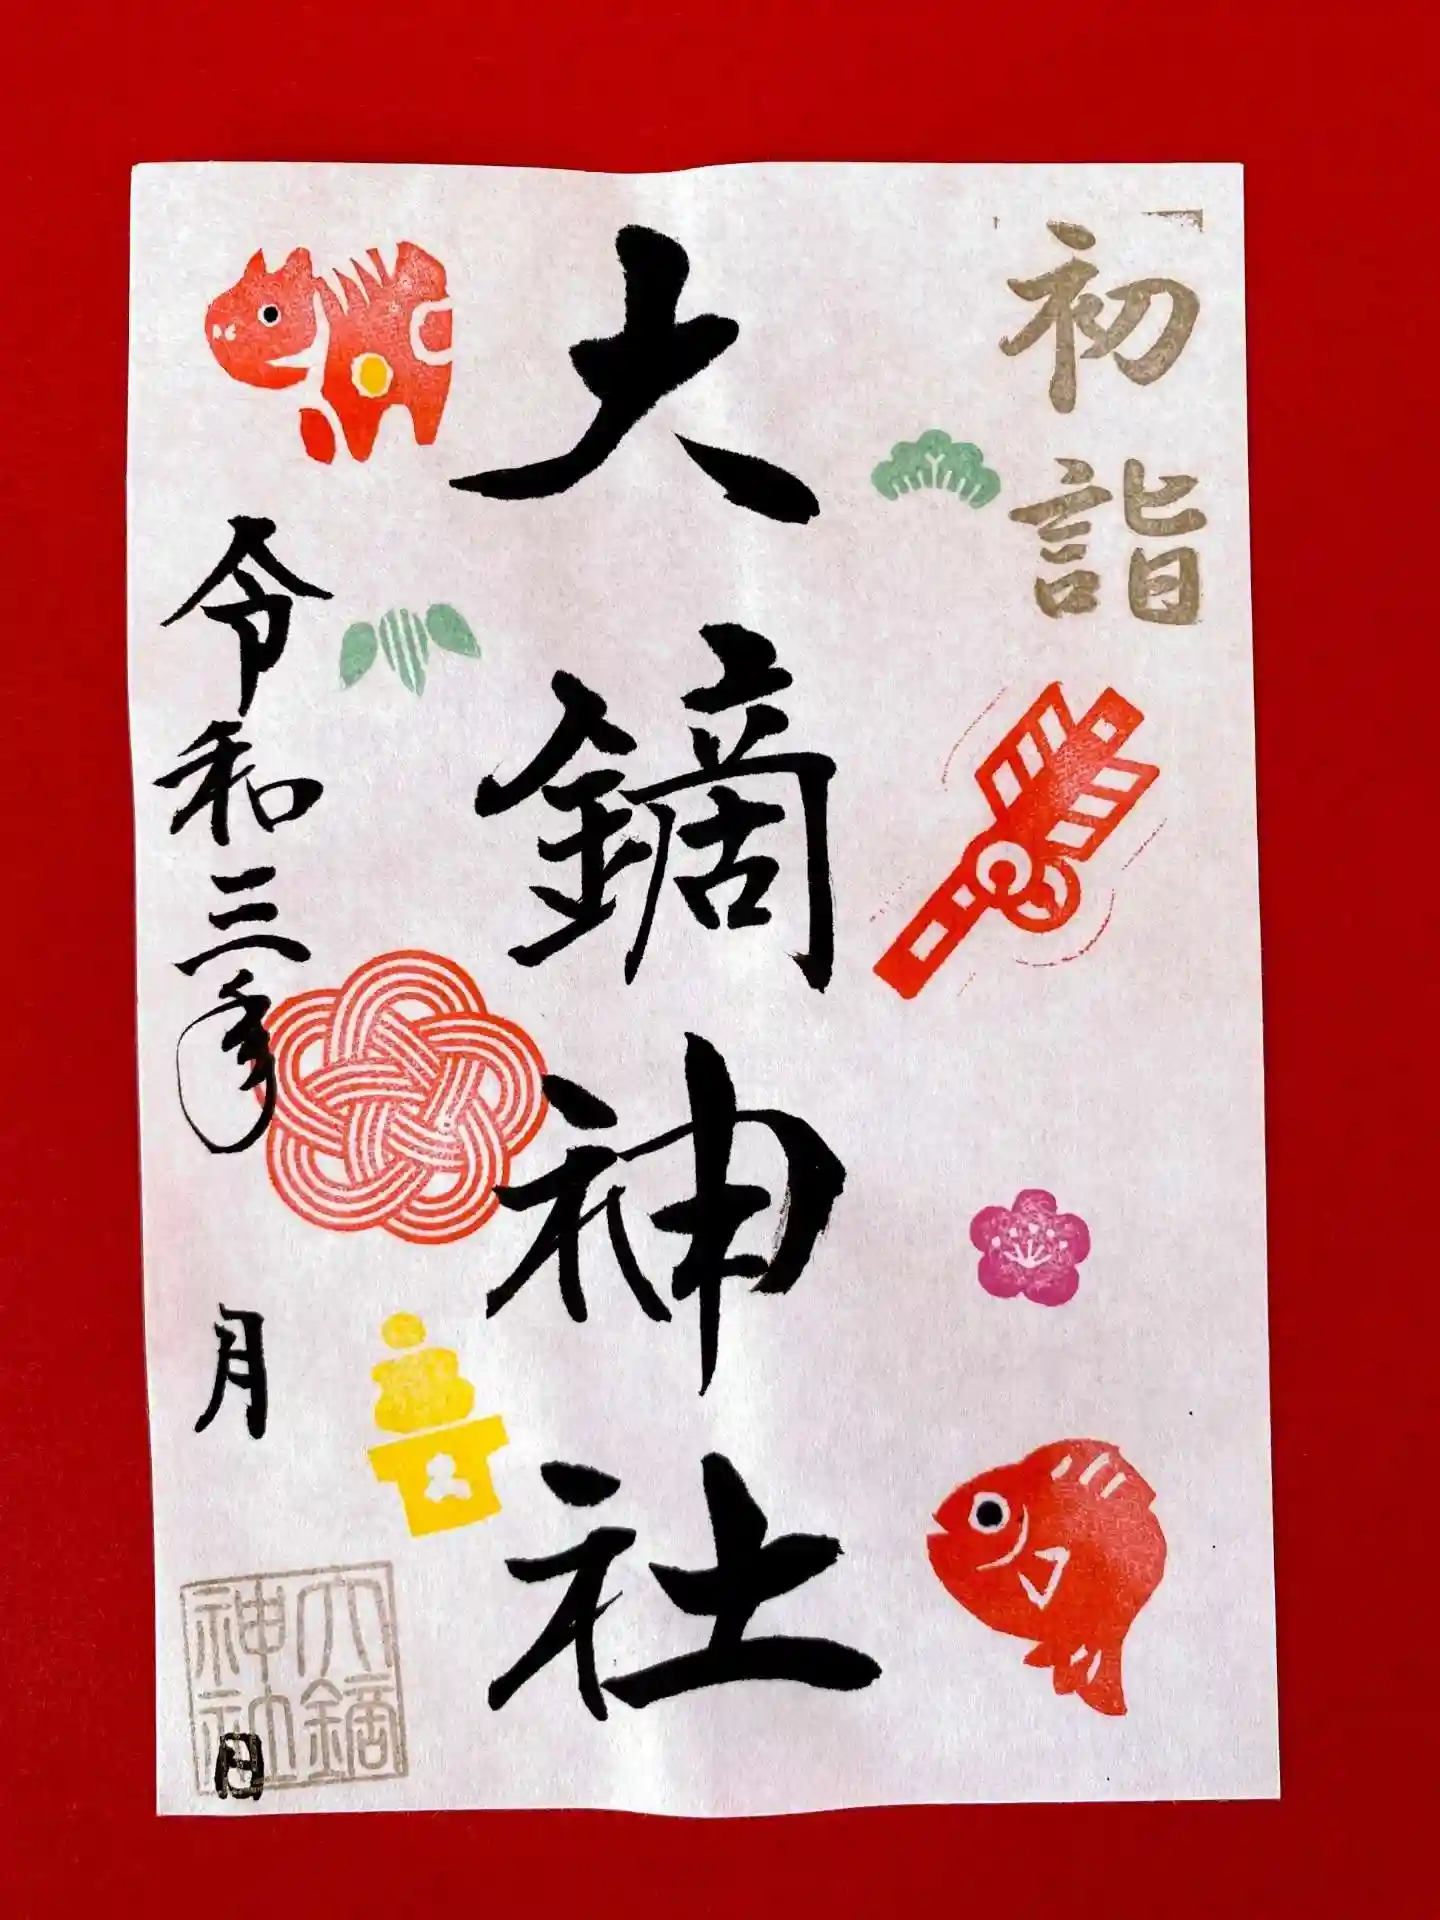 初詣
大鏑神社
令和三年 月 日
大鏑
神社